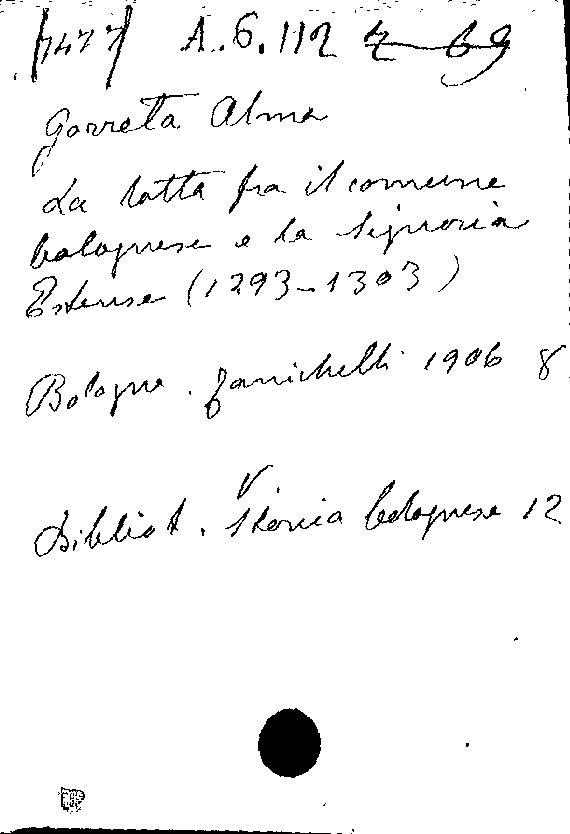 [7477] A.6.112
Gorreta Alma
La lotta fra il comune
bolognese e la Signoria
Estense (1293-1303)
Bologna. Zanichelli 1906 8
Bibliot. Storia bolognese 12